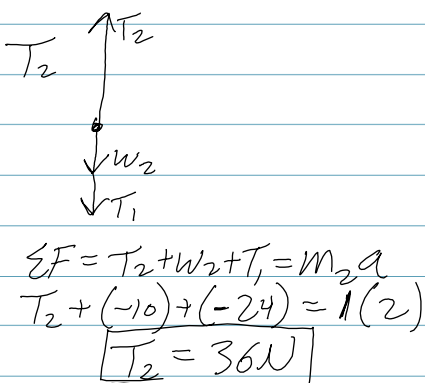 T₂
T₂
W₂
T₁
ΣF = T₂ + W₂ + T₁ = m₂a
T₂ + (-10) + (-24) = 1(2)
T₂ = 36N